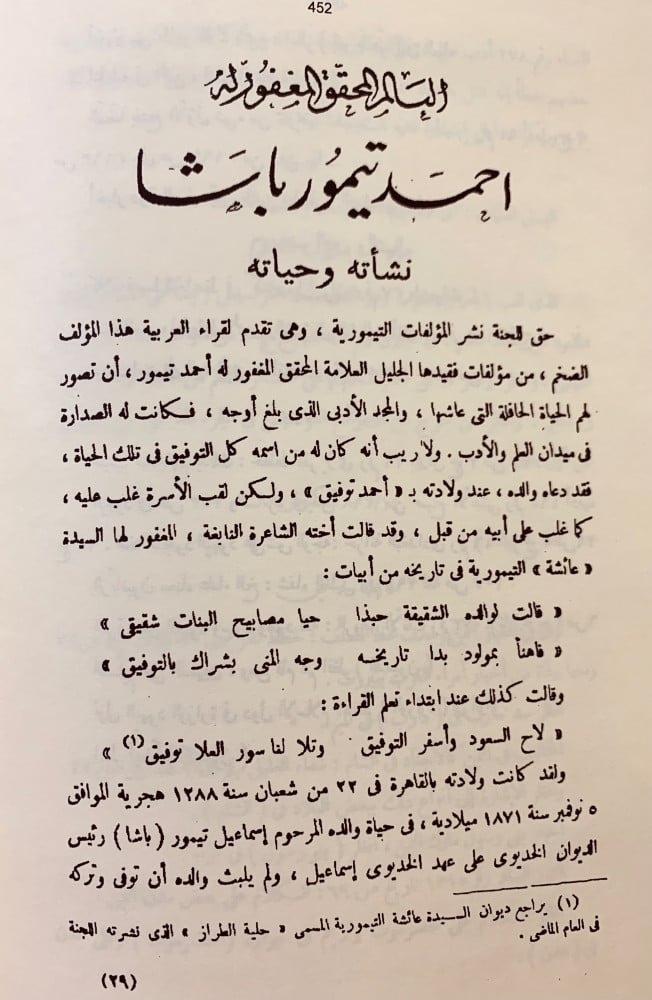 452
العالم المحقق المغفور له
احمد تيمور باشا
نشأته وحياته
حق للجنة نشر المؤلفات التيمورية ، وهى تقدم لقراء العربية هذا المؤلف
الضخم ، من مؤلفات فقيدها الجليل العلامة المحقق المغفور له أحمد تيمور ، أن تصور
لهم الحياة الحافلة التى عاشها ، والمجد الأدبى الذى بلغ أوجه ، فكانت له الصدارة
فى ميدان العلم والأدب . ولا ريب أنه كان له من اسمه كل التوفيق فى تلك الحياة ،
فقد دعاه والده ، عند ولادته بـ « أحمد توفيق » ، ولكن لقب الأسرة غلب عليه ،
كما غلب على أبيه من قبل ، وقد قالت أخته الشاعرة النابغة ، المغفور لها السيدة
« عائشة » التيمورية فى تاريخه من أبيات :
« قالت لوالده الشقيقة حبذا حيا مصابيح البنات شقيقى »
« فاهنأ بمولود بدا تاريخه وجه المنى بشراك بالتوفيق »
وقالت كذلك عند ابتداء تعلم القراءة :
« لاح السعود وأسفر التوفيق وتلا لنا سور العلا توفيق (١) »
ولقد كانت ولادته بالقاهرة فى ٢٢ من شعبان سنة ١٢٨٨ هجرية الموافق
٥ نوفمبر سنة ١٨٧١ ميلادية ، فى حياة والده المرحوم إسماعيل تيمور ( باشا ) رئيس
الديوان الخديوى على عهد الخديوى إسماعيل ، ولم يلبث والده أن توفى وتركه
(١) يراجع ديوان السيدة عائشة التيمورية المسمى « حلية الطراز » الذى نشرته اللجنة
فى العام الماضى .
(٢٩)